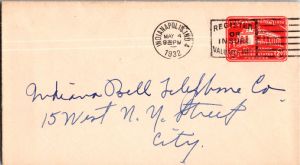 INDIANAPOLIS, IND. 4
MAY 4
9 PM
1932
REGISTER
OR
INSURE
VALUABLE MAIL
Indiana Bell Telephone Co
15 West N. Y. Street
City.